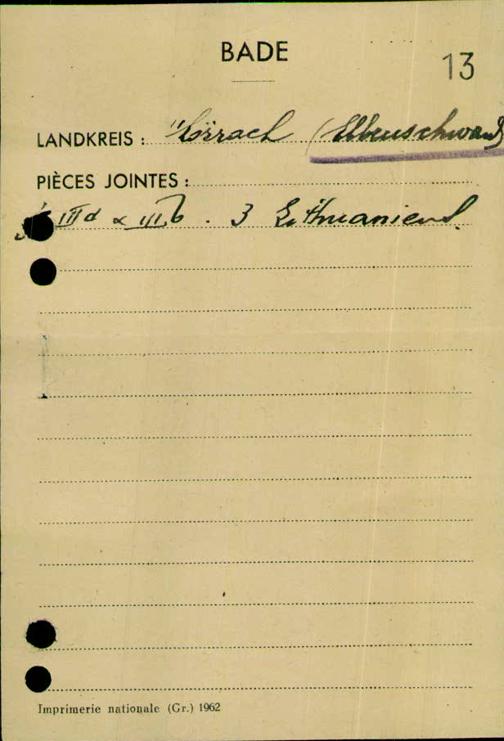 BADE
13
LANDKREIS : Lörrach (Elbenschwand
PIÈCES JOINTES :
III d & III b . 3 Lithuaniens.
Imprimerie nationale (Gr.) 1962